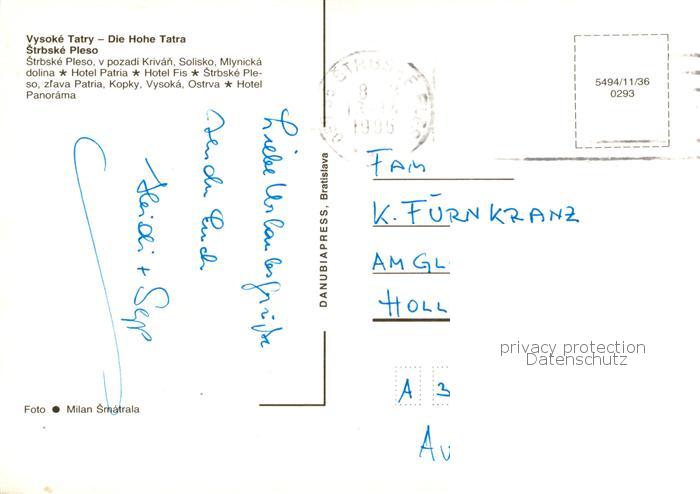 Vysoké Tatry – Die Hohe Tatra
Štrbské Pleso
Štrbské Pleso, v pozadí Kriváň, Solisko, Mlynická
dolina ★ Hotel Patria ★ Hotel Fis ★ Štrbské Ple-
so, zľava Patria, Kopky, Vysoká, Ostrva ★ Hotel
Panoráma
Liebe Urlaubsgrüße
senden Euch
Heidi + Sepp
Foto ● Milan Šmátrala
DANUBIAPRESS, Bratislava
ŠTRBSKÉ PLESO
1995
5494/11/36
0293
FAM
K. FÜRNKRANZ
AM GL
HOLL
A 3
AU
privacy protection
Datenschutz